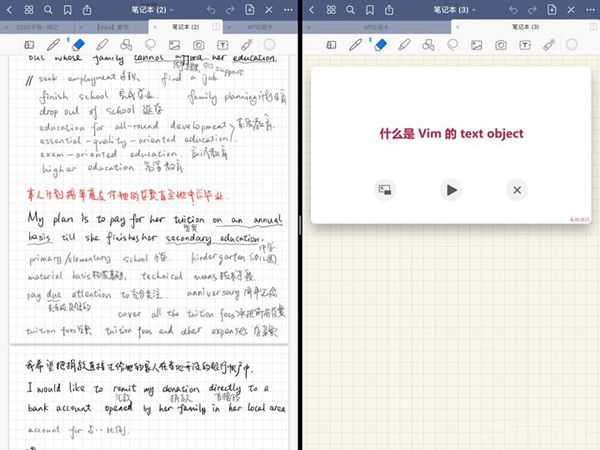 笔记本 (2)
2020手账·随记
【mba】数学
笔记本 (2)
but whose family cannot afford her education.
support
// seek employment 求职 find a job
finish school 完成学业 family planning 计划生育
drop out of school 退学
education for all-round development
essential-quality-oriented education. 素质教育
exam-oriented education. 应试教育
higher education. 高等教育
本人计划按年度支付她的学费直至她中学毕业.
My plan is to pay for her tuition on an annual
学费
basis till she finishes her secondary education.
中学
primary/elementary school 小学. kindergarten (幼儿园)
material basis 物质基础, technical means 技术手段
pay due attention to 充分关注. anniversary 周年纪念
cover all the tuition fees 承担所有学费
tuition fees 学费 tuition fees and other expenses 学杂费
我希望把捐款直接汇给她的家人在当地开设的银行帐户中.
I would like to remit my donation directly to a
汇款 捐款 直接的
bank account opened by her family in her local area
account for 占…比例
笔记本 (3)
MTG组卡
笔记本 (3)
什么是 Vim 的 text object